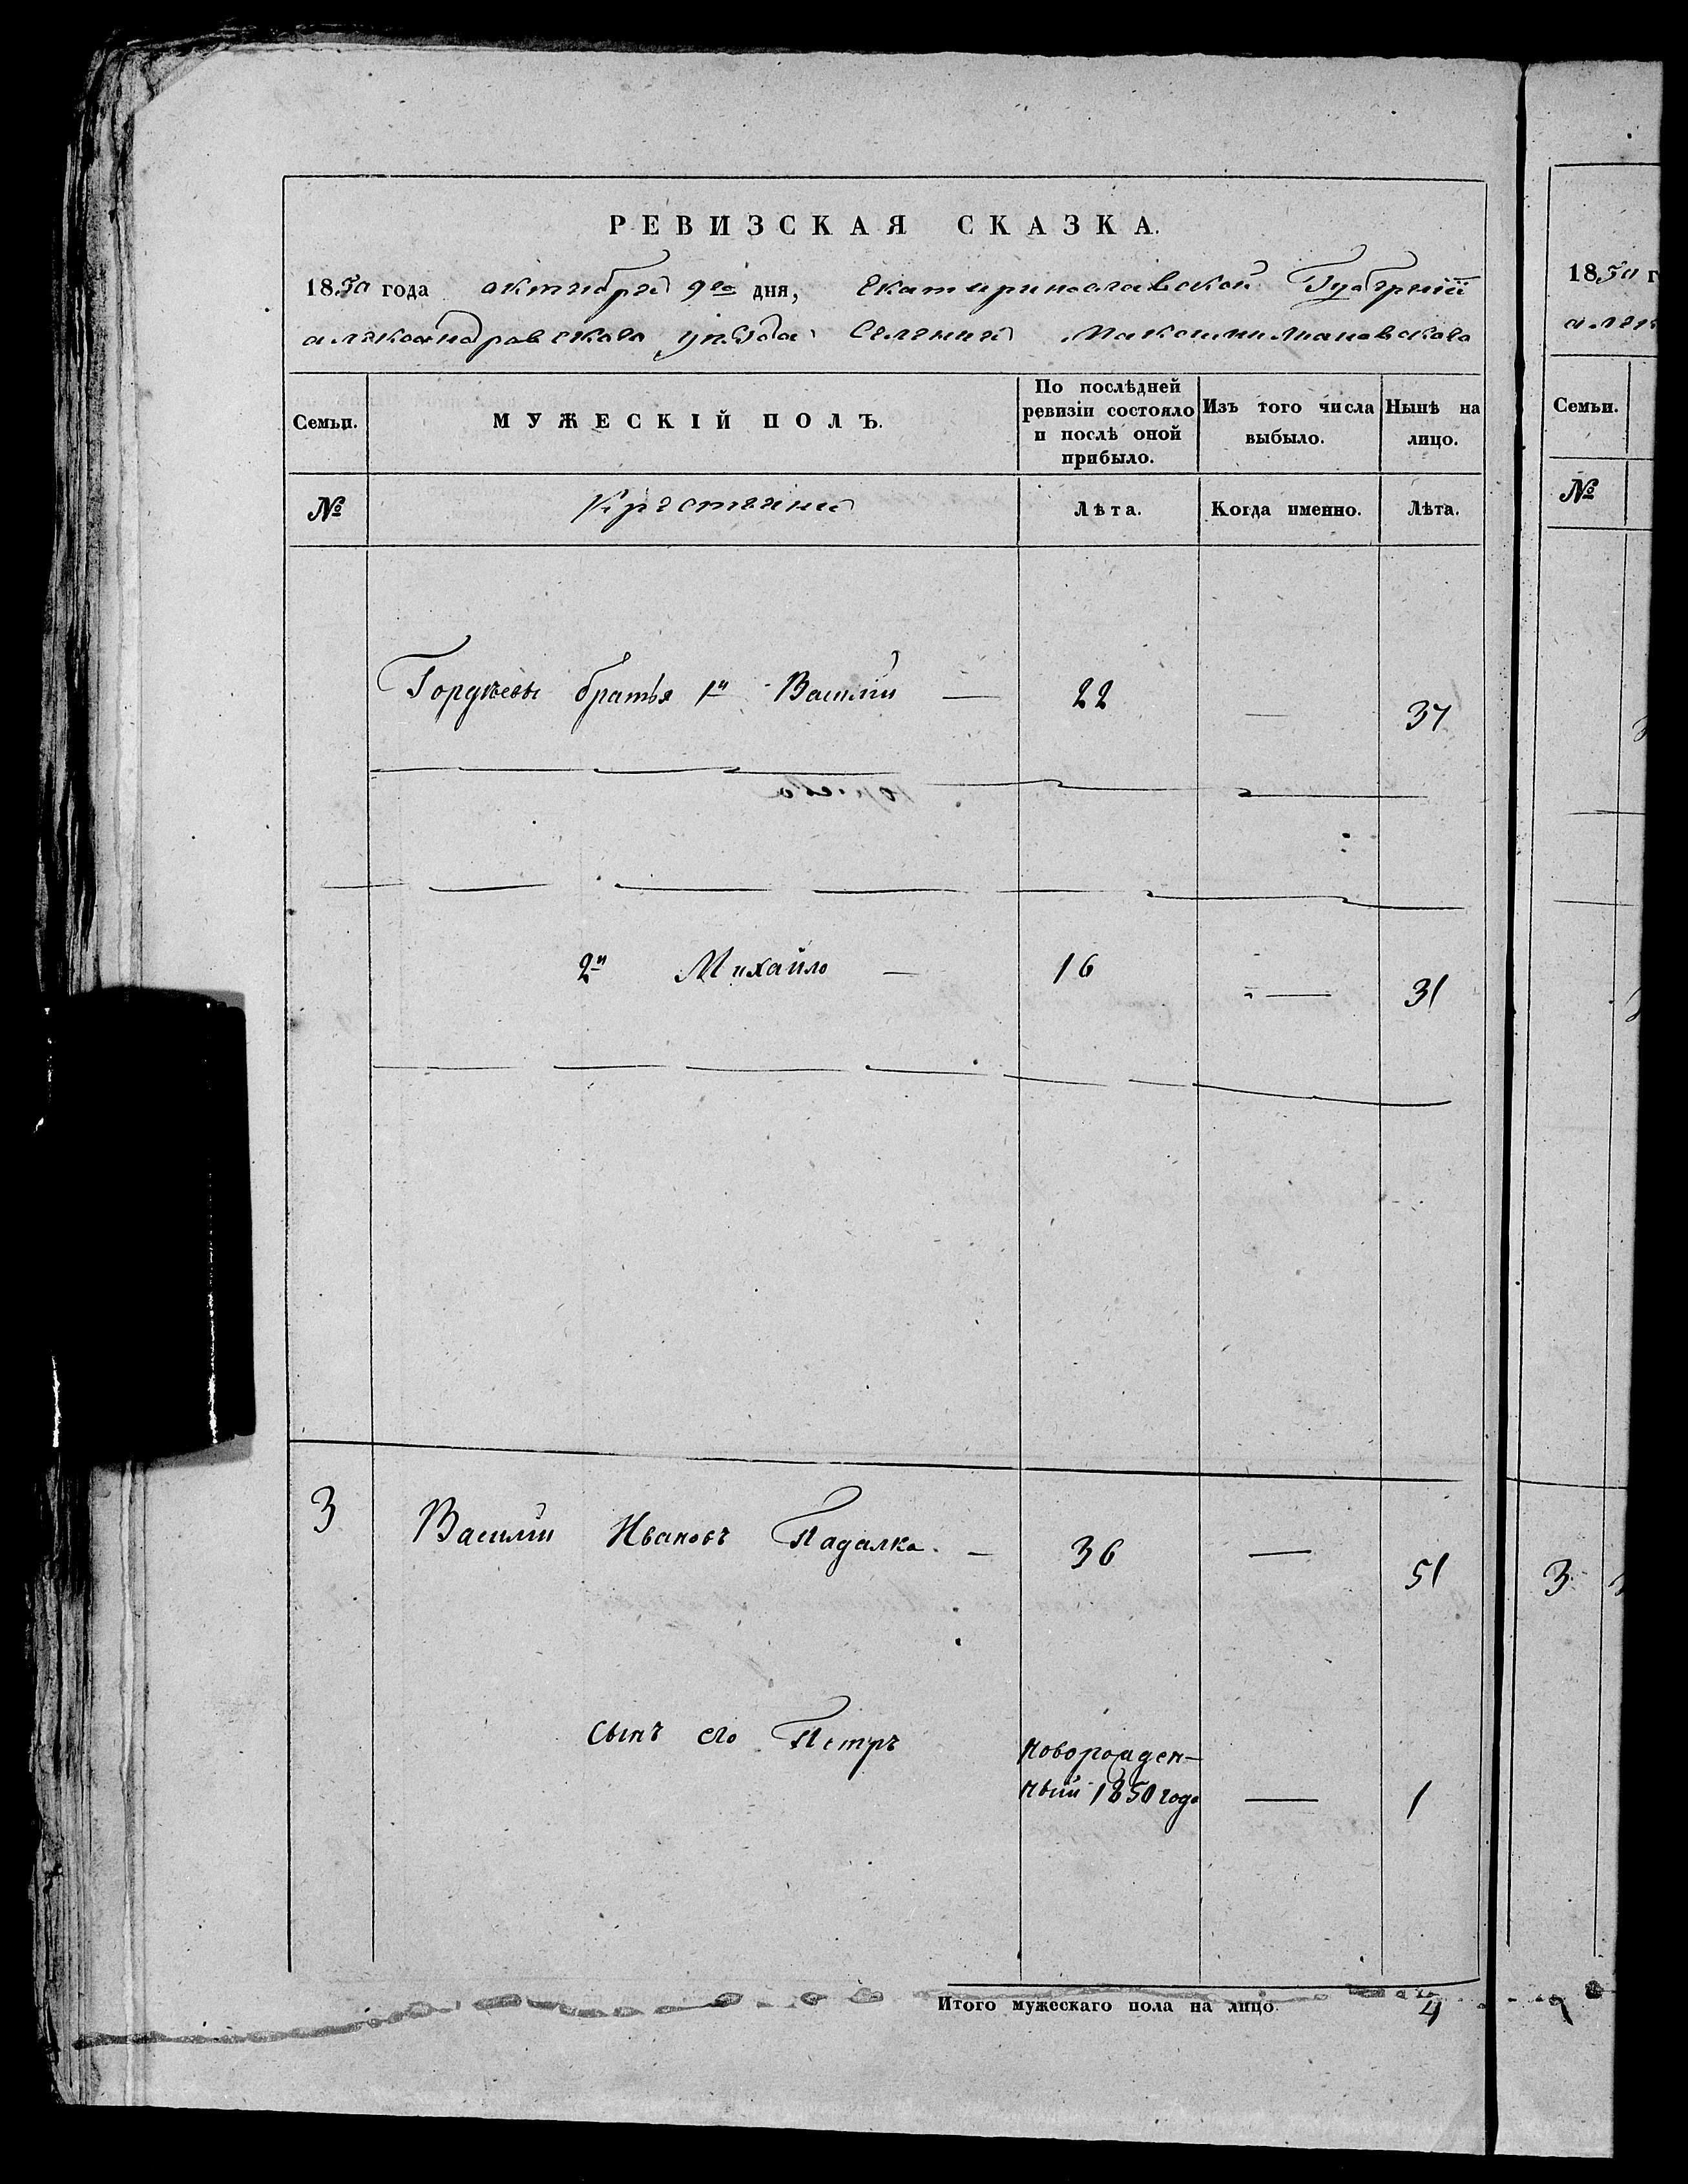 РЕВИЗСКАЯ СКАЗКА.
1850 года октября 9го дня, Екатеринославской Губернии
александровского уезда Селения Максимилиановского
Семьи.
МУЖЕСКІЙ ПОЛЪ.
По послѣдней
ревизіи состояло
и послѣ оной
прибыло.
Изъ того числа
выбыло.
Нынѣ на
лицо.
№
Крестьяни
Лѣта.
Когда именно.
Лѣта.
Гордѣевы братья 1й Василій — 22 — 37
2й Михайло — 16 — 31
3 Василій Ивановъ Падалка. — 36 — 51
сынъ его Петръ
новорожден-
ный 1850 года — 1
Итого мужескаго пола на лицо 4
1850 г
алек
Семьи.
№
3